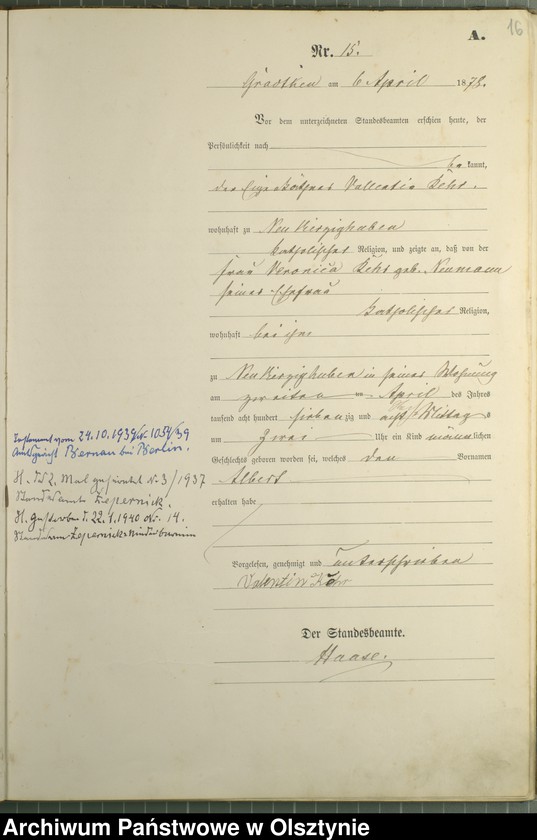 16
A.
Nr. 15.
am 6 April 1878.
Vor dem unterzeichneten Standesbeamten erschien heute, der
Persönlichkeit nach
be kannt,
der Eigenkäthner Vallentin
wohnhaft zu Neu Vierzighuben
katholischer Religion, und zeigte an, daß von der
Frau Veronica geb. Neumann
seiner Ehefrau
katholischer Religion,
wohnhaft bei ihm
zu Neu Vierzighuben in seiner Wohnung
am zweiten ten April des Jahres
tausend acht hundert siebenzig und acht Mittags
um zwei Uhr ein Kind männlichen
Geschlechts geboren worden sei, welches den Vornamen
Albert
erhalten habe
Vorgelesen, genehmigt und unterschrieben
Valentin
Der Standesbeamte.
Haase.
Testament vom 24.10.1939
Amtsgericht Bernau bei Berlin.
H. 2. Mal geheiratet Nr. 3/1937
Standesamt Zepernick.
H. gestorben d. 22.1.1940 Nr. 14.
Standesamt Zepernick
Archiwum Państwowe w Olsztynie